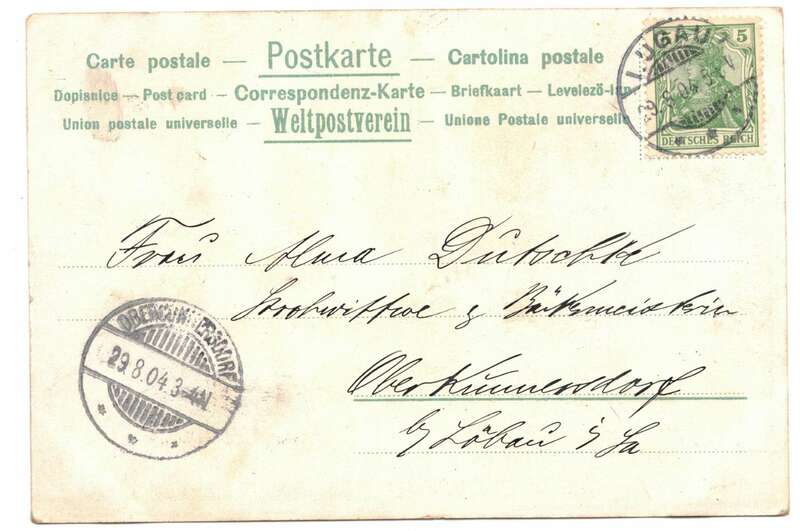 Carte postale — Postkarte — Cartolina postale
Dopisnice — Post card — Correspondenz-Karte — Briefkaart — Levelező-
Union postale universelle — Weltpostverein — Unione Postale universelle
LUGAU
8.04.5
5
DEUTSCHES REICH
Frau Alma Dutschke
& Bäckermeisterin
Oberkunnersdorf
b/ Löbau i/ Sa
29.8.04.3-4N